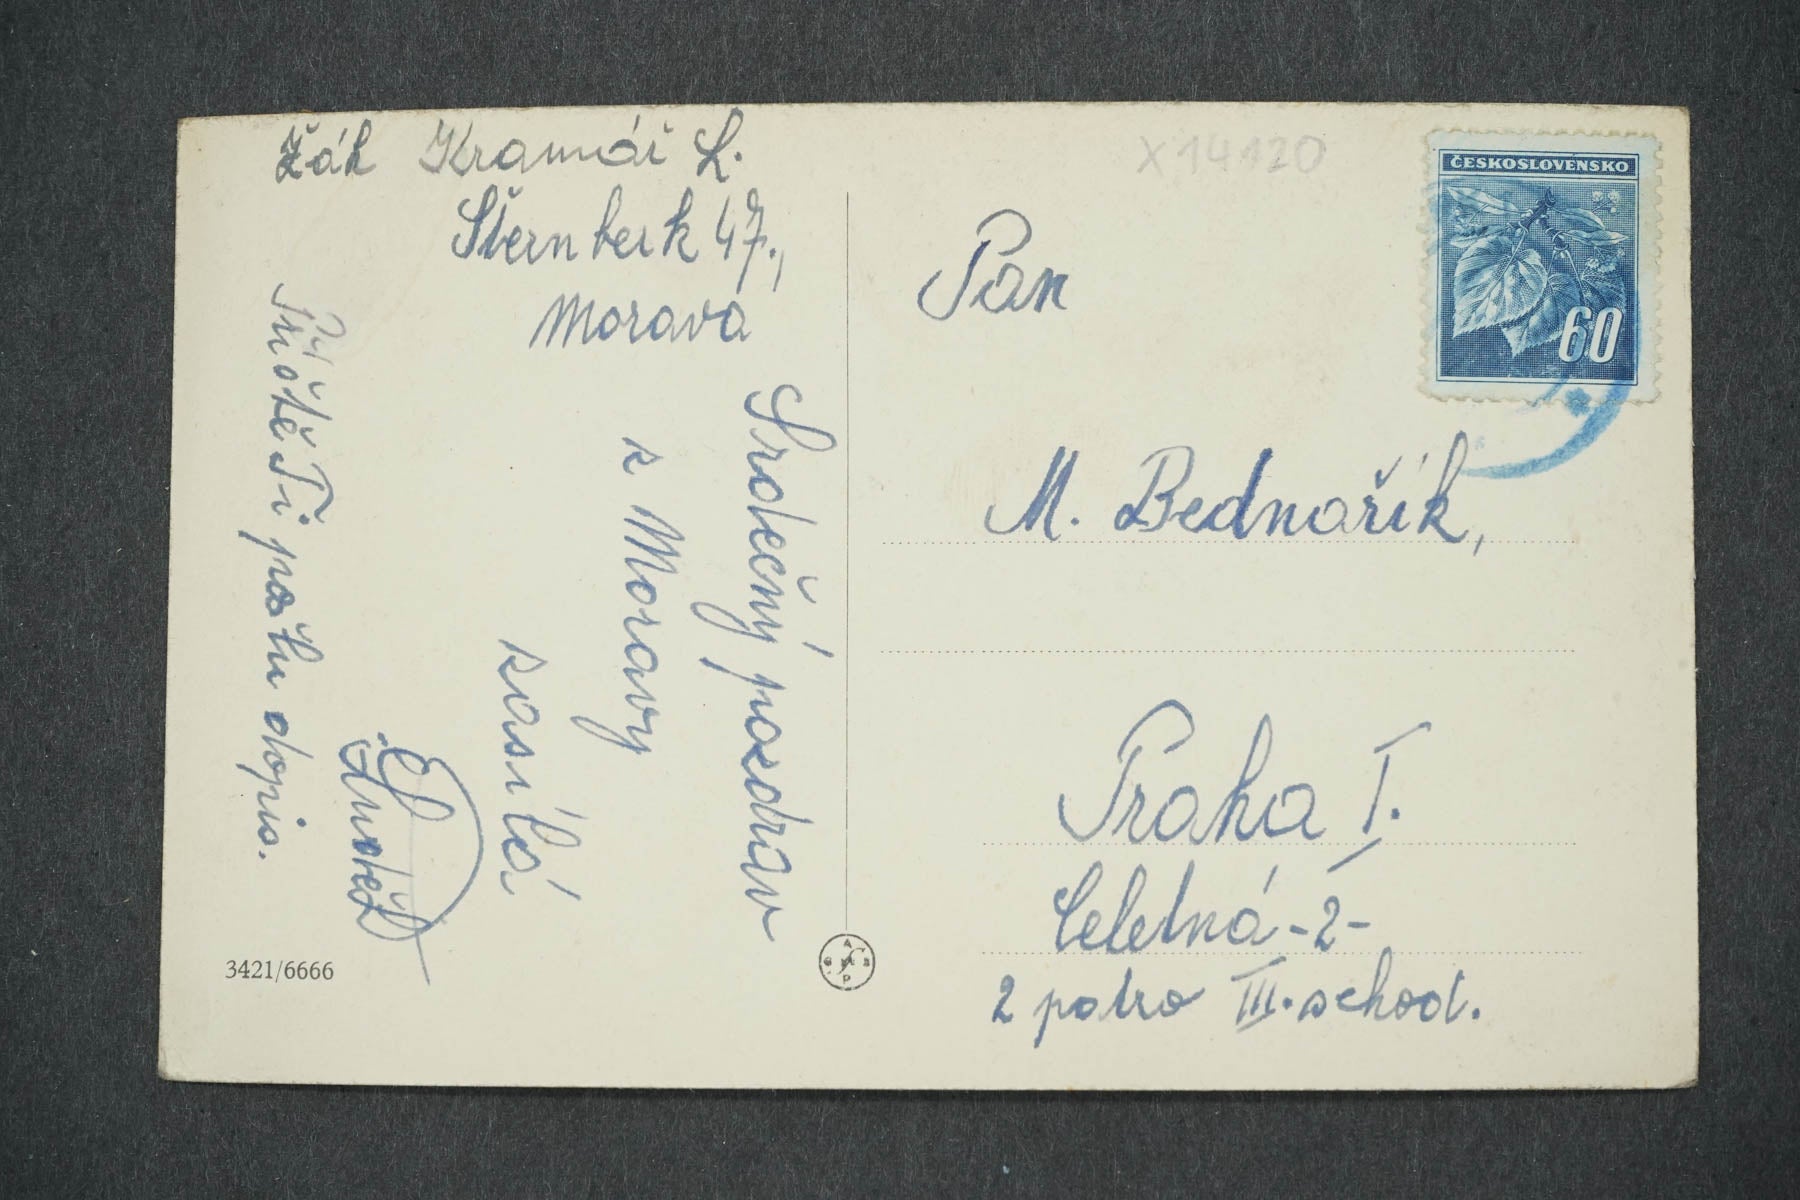 Žák Kramář L.
Šternberk 47.,
Morava
Srdečný pozdrav
z Moravy
zasílá
Příště Ti pošlu dopis.
3421/6666
X 14120
ČESKOSLOVENSKO
60
Pan
M. Bednařík,
Praha I.
Celetná -2-
2 patro III. schod.